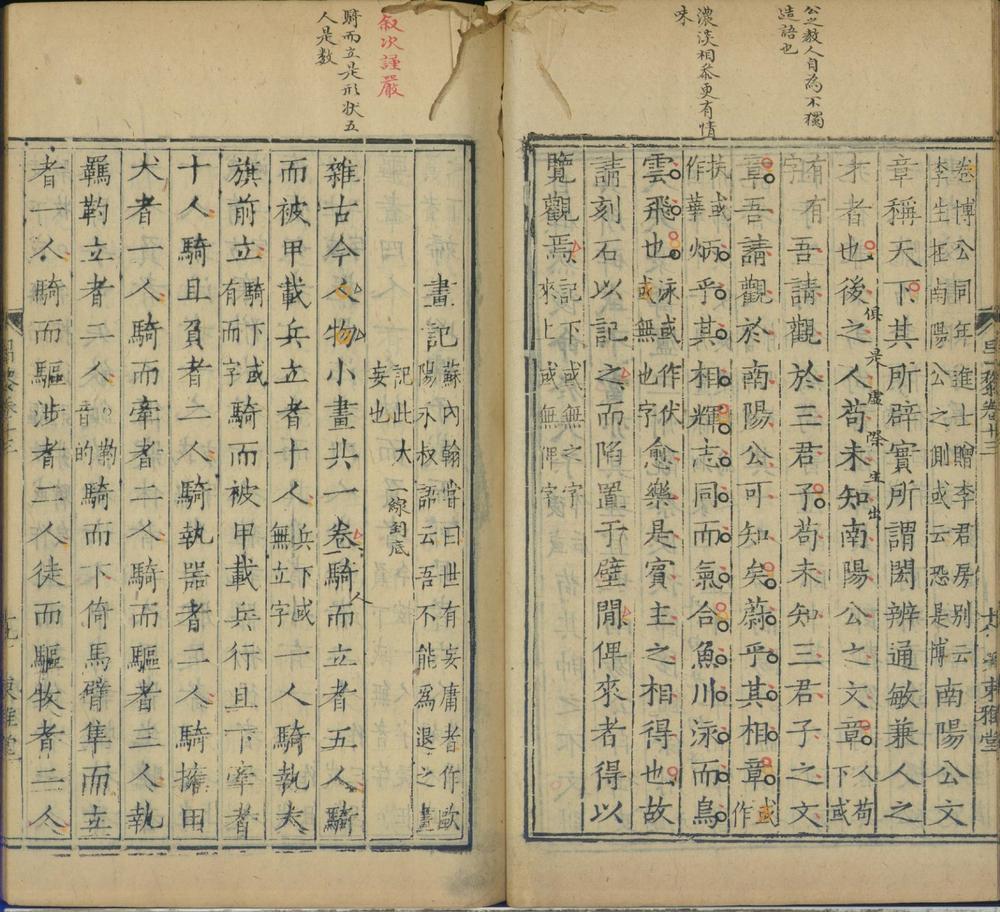 公之教人自為不獨
造語也
濃淡相參更有情
味
卷博公同年進士贈李君房別云
李生在南陽公之側或云恐是博
南陽公文
章稱天下其所辟實所謂閎辨通敏兼人之
才者也後之人苟未知南陽公之文章
人苟
下或
有有
字
俱是虛際生出
吾請觀於三君子苟未知三君子之文
章吾請觀於南陽公可知矣蔚乎其相章
或
作
扶或
作華
炳乎其相輝志同而氣合魚川泳而鳥
雲飛也
泳或作伏
或無也字
愈樂是賓主之相得也故
請刻石以記之而陷置于壁間俾來者得以
覽觀焉
記下或無之字
來上或無俾字
東雅堂
敘次謹嚴
騎而立是形狀五
人是數
畫記
蘇內翰嘗曰世有妄庸者作歐
陽永叔語云吾不能為退之畫
記此大
妄也
一線到底
雜古今人物小畫共一卷騎而立者五人騎
而被甲載兵立者十人
兵下或
無立字
一人騎執大
旗前立
騎下或
有而字
騎而被甲載兵行且下牽者
十人騎且負者二人騎執器者二人騎擁田
犬者一人騎而牽者二人騎而驅者三人執
羈靮立者二人
靮
音的
騎而下倚馬臂隼而立
者一人騎而驅涉者二人徒而驅牧者二人